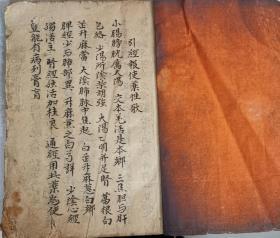 引經報使藥性歌
小腸膀胱屬太陽 文本羌活是本鄉 三焦胆与肝
包絡 少陽厥陰柴胡強 陽明胃 葛根白
芷升麻當 太陰肺脉中焦起 白芷升麻葱白鄉
脾經少与肺部異 升麻 之白芍詳 少陰心經
獨活主 腎經獨活加桂良 通經用此藥為使
豈能有病到膏肓